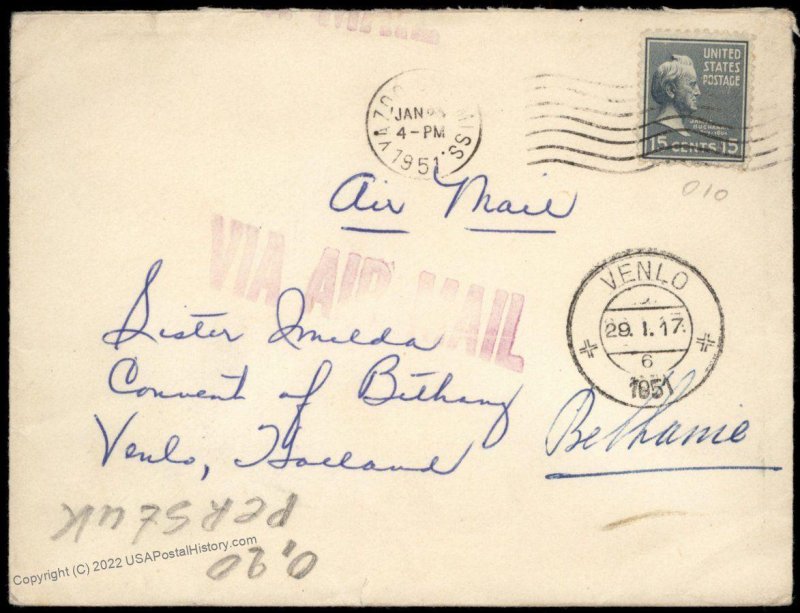 VIA AIR MAIL
YAZOO MISS.
JAN
4-PM
1951
UNITED
STATES
POSTAGE
15 CENTS 15
010
Air Mail
VIA AIR MAIL
VENLO
29.1.17
6
1951
Sister Imelda
Convent of Bethany
Bethanie
Venlo, Holland
PER STUK
0,20
Copyright (C) 2022 USAPostalHistory.com